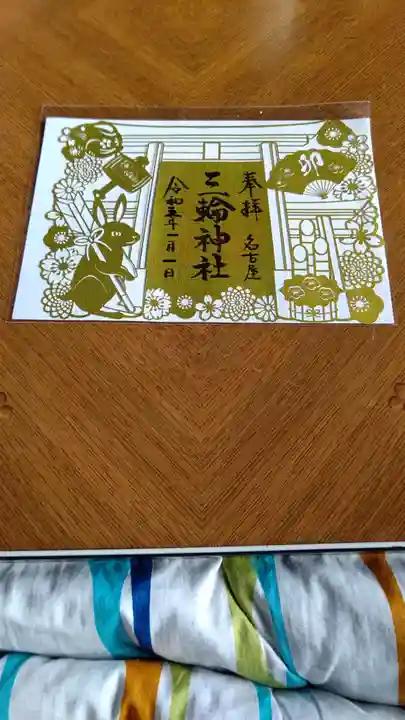 奉拝
名古屋
三輪神社
令和五年一月一日
卯